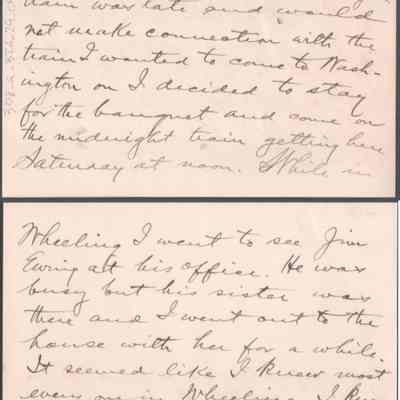 train was late and would
not make connection with the
train I wanted to come to Wash-
ington on I decided to stay
for the banquet and come on
the midnight train getting here
Saturday at noon. While in
Wheeling I went to see Jim
Ewing at his office. He was
busy but his sister was
there and I went out to the
house with her for a while.
It seemed like I knew most
every one in Wheeling. I